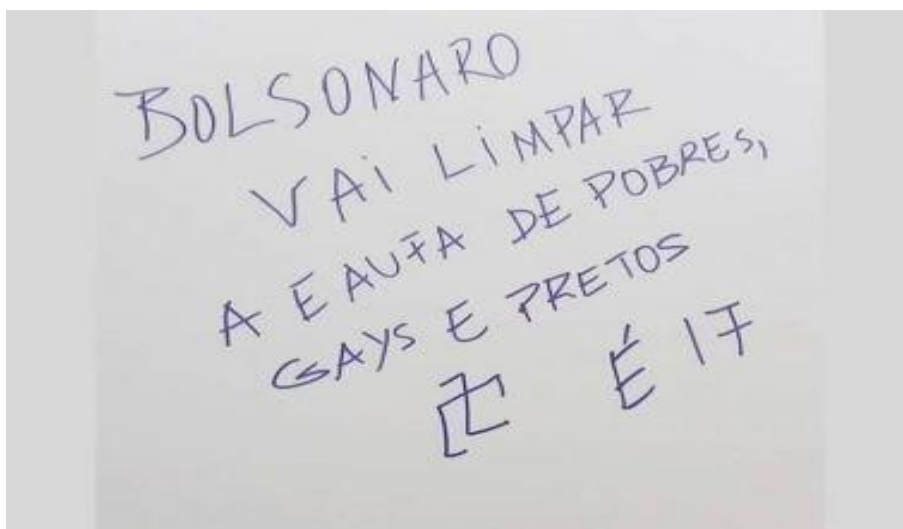 BOLSONARO
VAI LIMPAR
A EAUFA DE POBRES,
GAYS E PRETOS
É 17